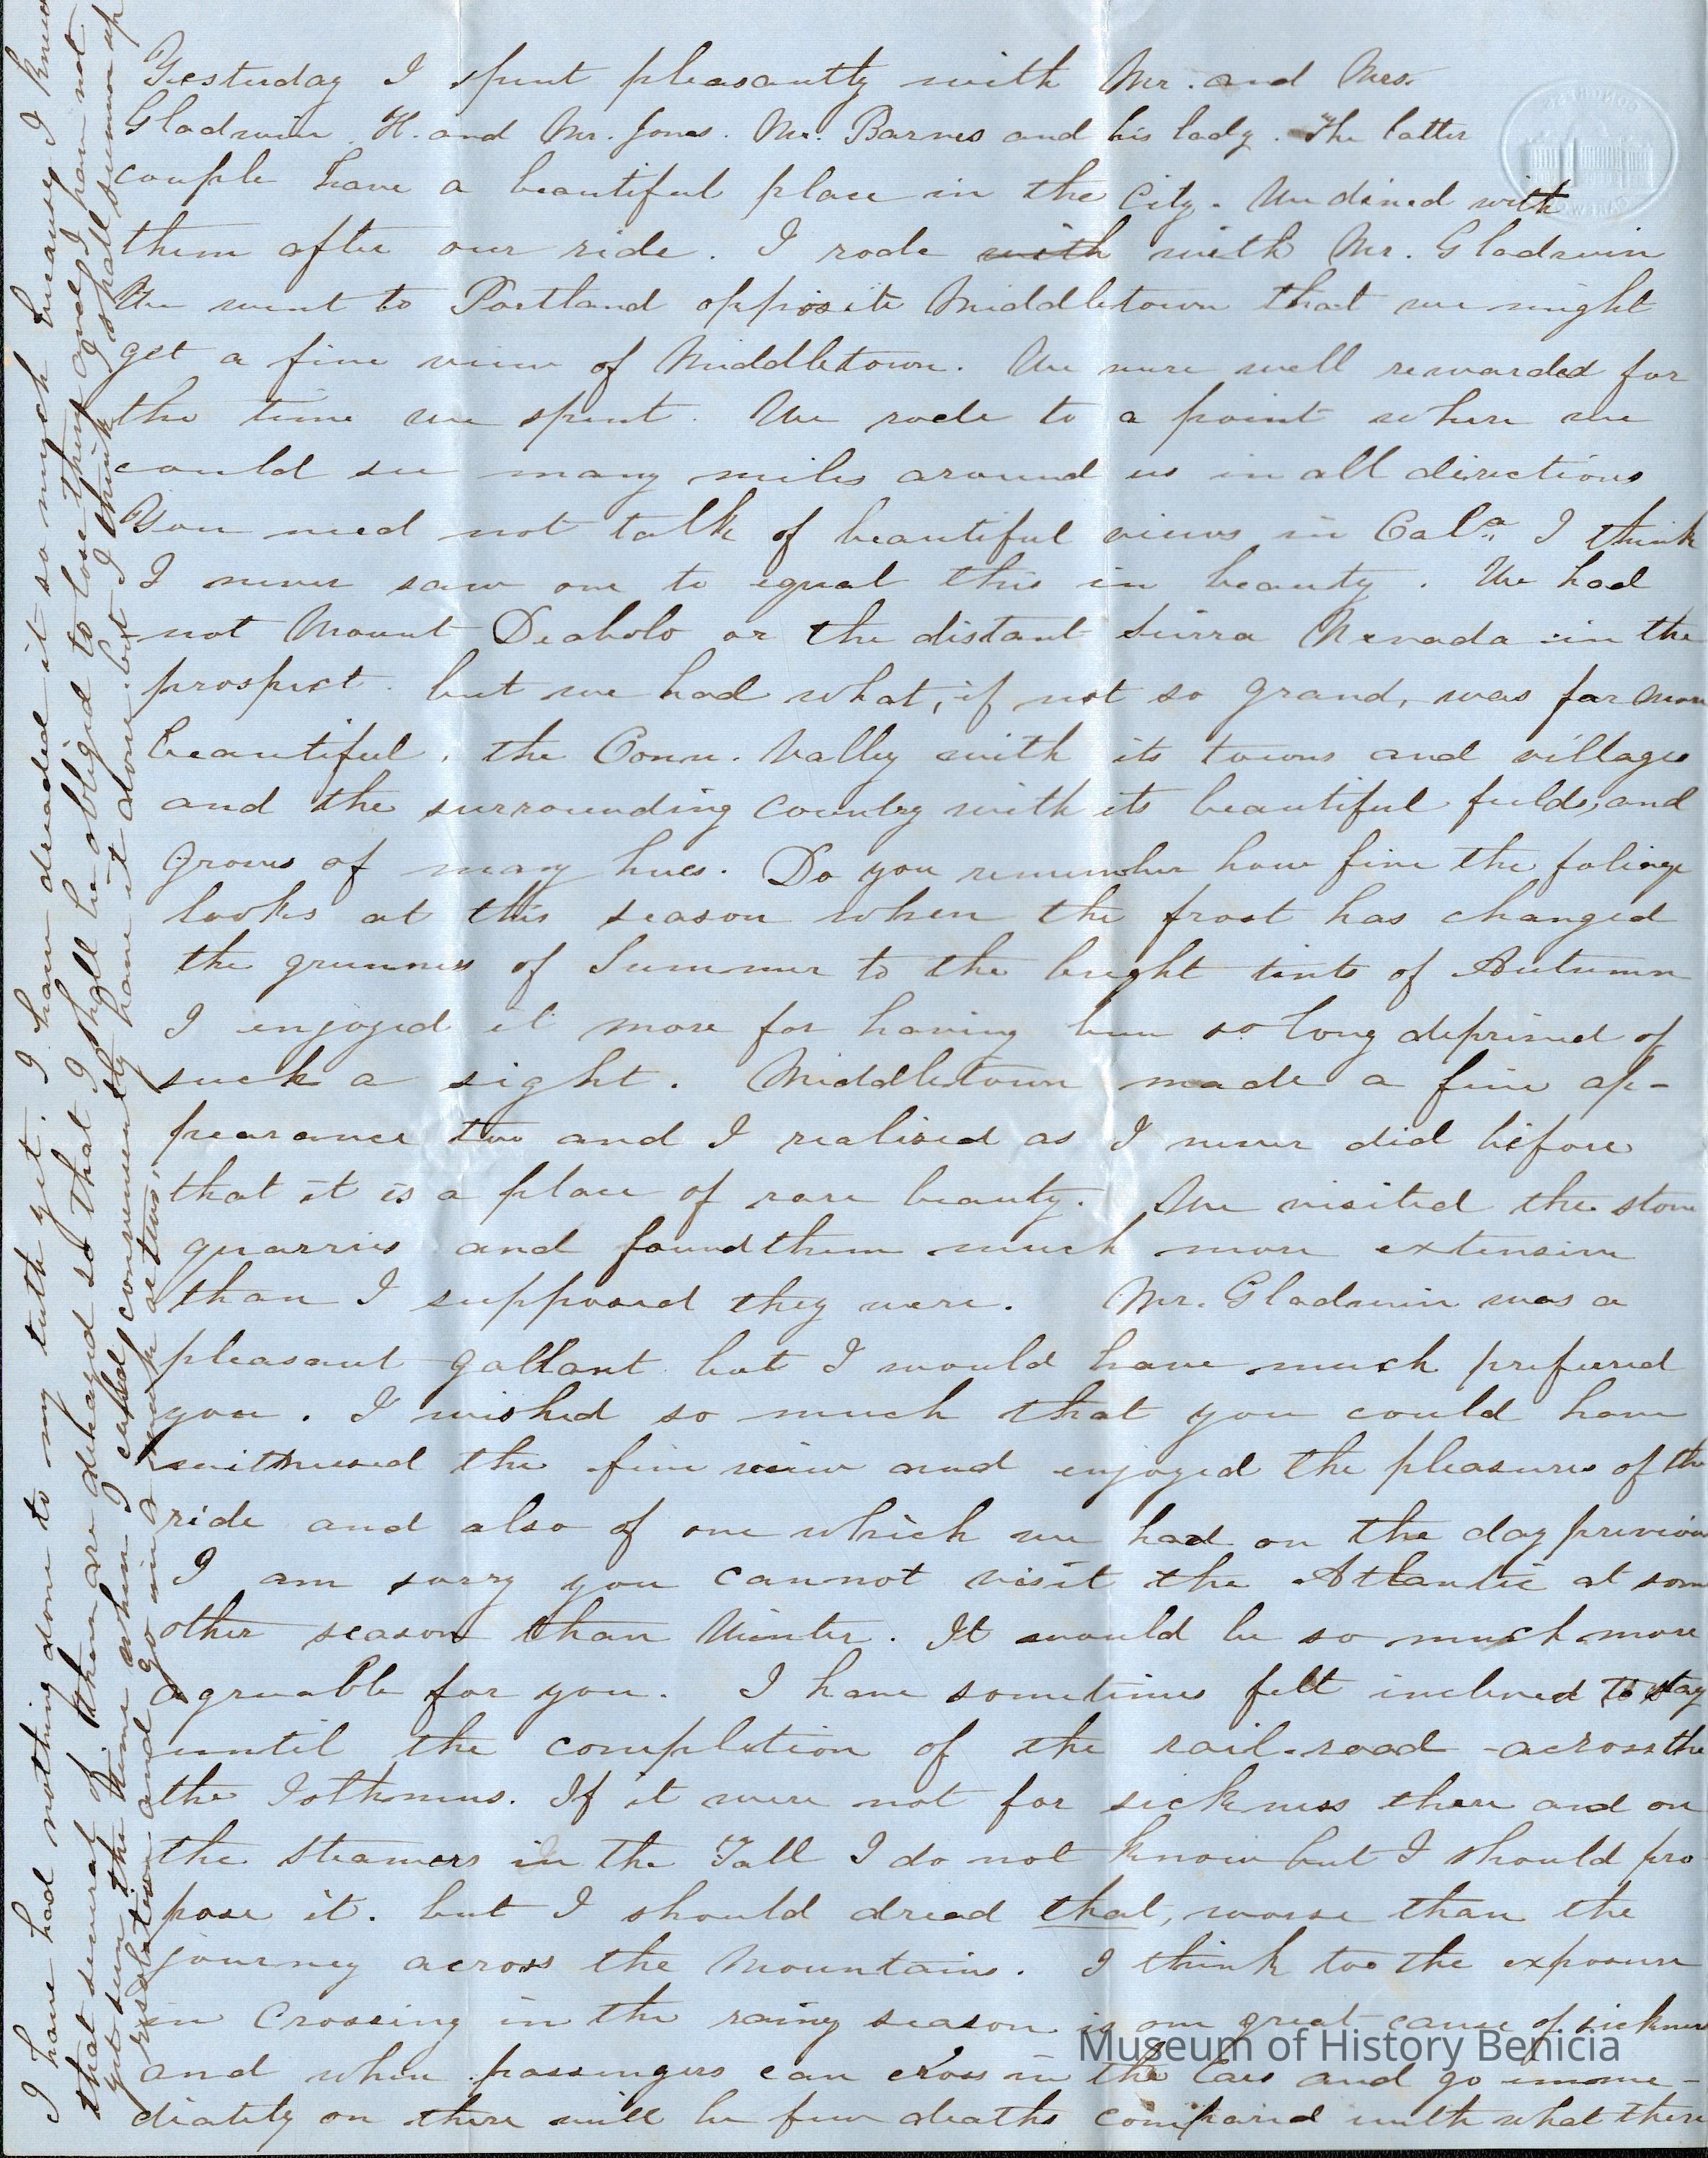 Yesterday I spent pleasantly with Mr. and Mrs.
Gladwin H. and Mr. Jones. Mr. Barnes and his lady. The latter
couple have a beautiful place in the City. We dined with
them after our ride. I rode with with Mr. Gladwin
We went to Portland opposite Middletown that we might
get a fine view of Middletown. We were well rewarded for
the time we spent. We rode to a point where we
could see many miles around us in all directions
You need not talk of beautiful views in Cala. I think
I never saw one to equal this in beauty. We had
not Mount Deabolo or the distant Sierra Nevada in the
prospect. but we had what, if not so grand, was far more
beautiful, the Conn. Valley with its towns and villages
and the surrounding country with its beautiful fields, and
groves of many hues. Do you remember how fine the foliage
looks at this season when the frost has changed
the greenness of Summer to the bright tints of Autumn
I enjoyed it more for having been so long deprived of
such a sight. Middletown made a fine ap-
pearance too and I realised as I never did before
that it is a place of rare beauty. We visited the stone
quarries and found them much more extensive
than I supposed they were. Mr. Gladwin was a
pleasant gallant but I would have much preferred
you. I wished so much that you could have
witnessed the fine view and enjoyed the pleasures of the
ride and also of one which we had on the day previous
I am sorry you cannot visit the Atlantic at some
other season than Winter. It would be so much more
agreeable for you. I have sometimes felt inclined to stay
until the completion of the rail-road across the
the Isthmus. If it were not for sickness there and on
the steamers in the Fall I do not know but I should pro
pose it. but I should dread that, worse than the
journey across the Mountains. I think too the exposure
in crossing in the rainy season is one great cause of sickness
and when passengers can cross in the Cars and go imme-
diately on there will be few deaths compared with what there
I have had nothing done to my teeth yet. I have dreaded it so much because I know
that several of them are decayed so that I shall be obliged to lose them and I have not
yet seen the time when I could conveniently have it done. but I think I shall summon up
resolution and go in a week or two.
Museum of History Benicia